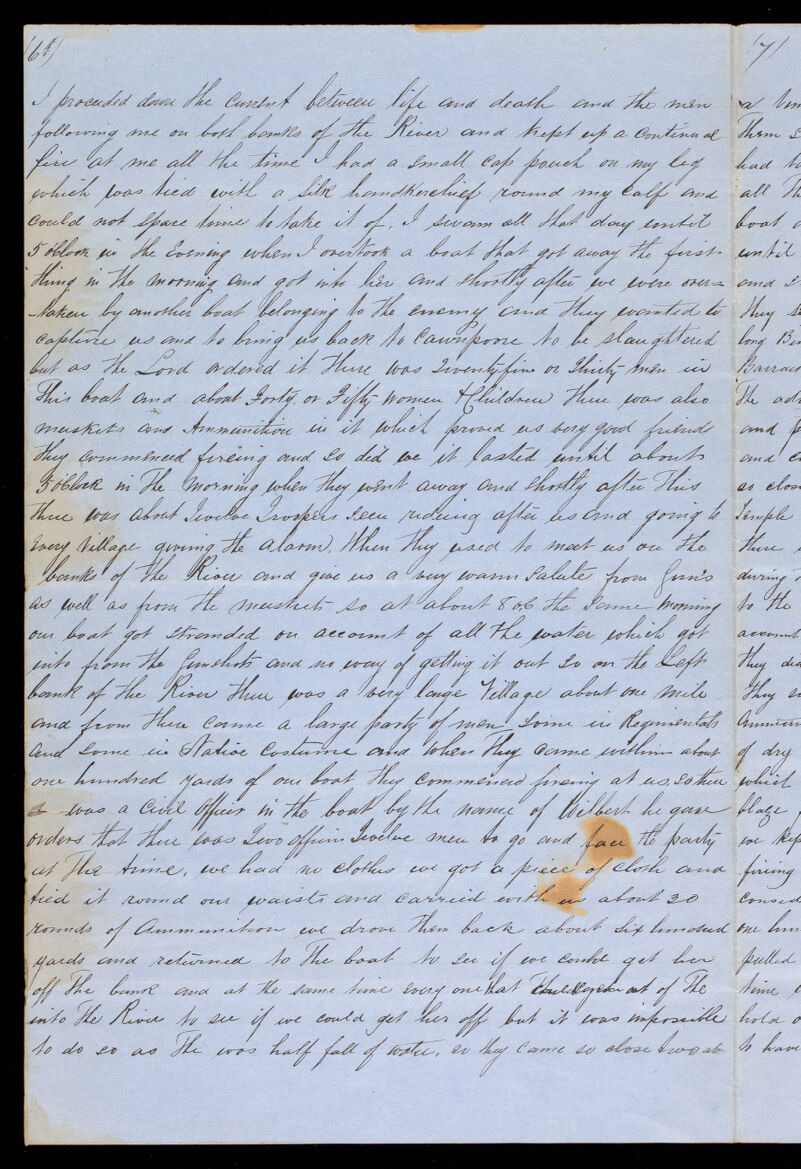 (6th)
I proceeded down the Current between life and death and the men
following me on both banks of the River and kept up a continual
fire at me all the time I had a small cap pouch on my leg
which was tied with a Silk handkerchief round my Calf and
could not spare time to take it of. I swam all that day until
5 oClock in the Evening when I overtook a boat that got away the first
thing in the morning and got into her and shortly after we were over=
taken by another boat belonging to the enemy and they wanted to
capture us and to bring us back to Cawnpoore to be slaughtered
but as the Lord ordered it there was Twentyfive or Thirty men in
this boat and about Forty or Fifty women & Children there was also
muskets and Ammunition in it which proved us very good friends
they commenced fireing and so did we it lasted until about
5 oClock in the morning when they went away and shortly after this
there was about Twelve Troopers seen rideing after us and going to
every Village giving the alarm. When they used to meet us on the
banks of the River and give us a very warm Salute from Guns
as well as from the muskets so at about 8 o6 the same morning
our boat got stranded on account of all the water which got
into from the Gunshots and no way of getting it out so on the Left
bank of the River there was a very large Village about one mile
and from there came a large party of men some in Regimentals
and some in Native Costume and when they came within about
one hundred yards of our boat they commenced fireing at us. so there
was a Civil Officer in the boat by the name of Wilbert he gave
orders that there was Two officers Twelve men to go and face the party
at the time, we had no clothes we got a piece of cloth and
tied it round our waists and carried with us about 20
rounds of Ammunition we drove them back about Six hundred
yards and returned to the boat to see if we could get her
off the bank and at the same time every one that of the
into the River to see if we could get her off but it was impossible
to do so as the was half full of water, so they came so close
(7)
a
them
had
all th
boat
until
and
they
long
Barrac
the ad
and
and
as clos
Temple
there
during
to the
account
they
they
Ammun
of dry
which
blaze
we kep
fireing
consid
one hun
pulled
time
hold o
to have